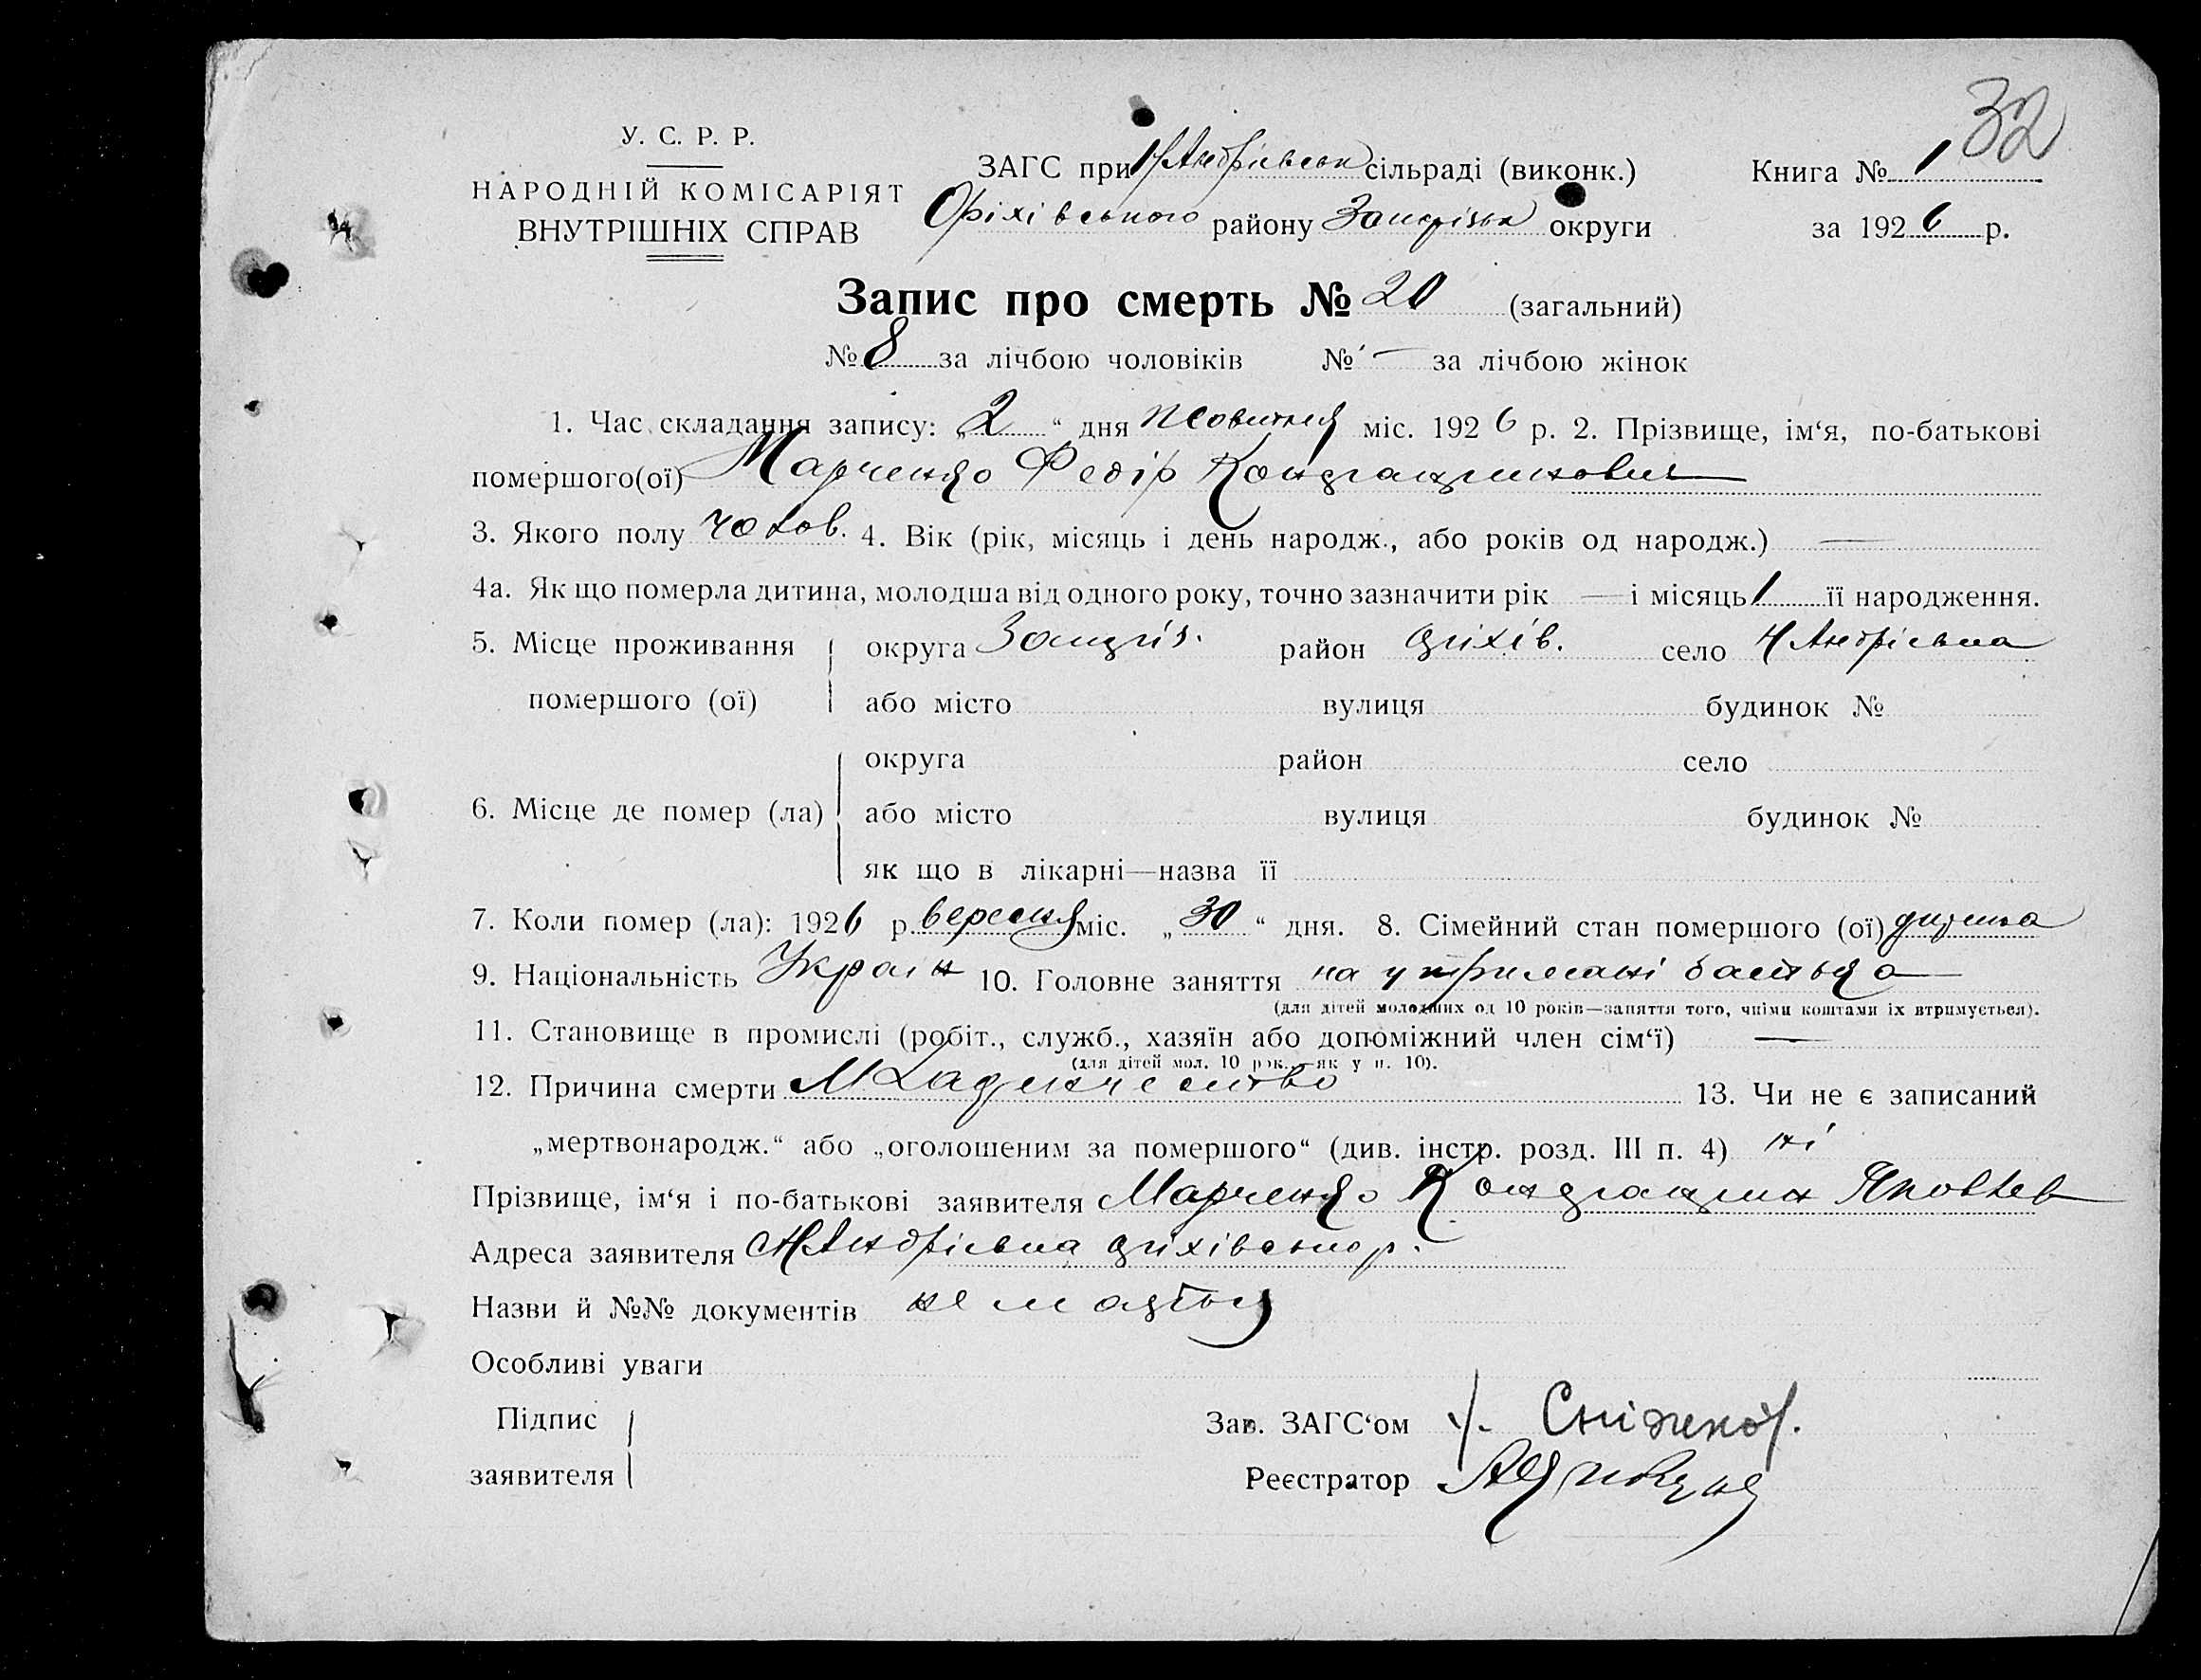 32
У. С. Р. Р.
НАРОДНІЙ КОМІСАРІЯТ
ВНУТРІШНІХ СПРАВ
ЗАГС при Н Андрієвськ сільраді (виконк.)
Оріхівського району Запоріськ округи
Книга № 1
за 1926 р.
Запис про смерть № 20 (загальний)
№ 8 за лічбою чоловіків № — за лічбою жінок
1. Час складання запису: „2“ дня жовтня міс. 1926 р. 2. Прізвище, ім‘я, по-батькові
помершого(ої) Марченко Федір Кондратинович
3. Якого полу чолов. 4. Вік (рік, місяць і день народж., або років од народж.) —
4а. Як що померла дитина, молодша від одного року, точно зазначити рік — і місяць 1 її народження.
5. Місце проживання помершого (ої) округа Запоріз. район Оріхів. село Н Андрієвка
або місто вулиця будинок №
6. Місце де помер (ла) округа район село
або місто вулиця будинок №
як що в лікарні—назва її
7. Коли помер (ла): 1926 р. вересня міс. „30“ дня. 8. Сімейний стан помершого (ої) дитина
9. Національність Україн 10. Головне заняття на утримані батька
(для дітей молодших од 10 років—заняття того, чиїми коштами їх втримується).
11. Становище в промислі (робіт., служб., хазяїн або допоміжний член сім‘ї) —
(для дітей мол. 10 рок.—як у п. 10).
12. Причина смерти Младенчество 13. Чи не є записаний
„мертвонародж.“ або „оголошеним за помершого“ (див. інстр. розд. III п. 4) ні
Прізвище, ім‘я і по-батькові заявителя Марченко Кондратин Яковлев
Адреса заявителя Н Андрієвка Оріхівськ р.
Назви й №№ документів не мається
Особливі уваги
Підпис заявителя
Зав. ЗАГС‘ом
Реєстратор